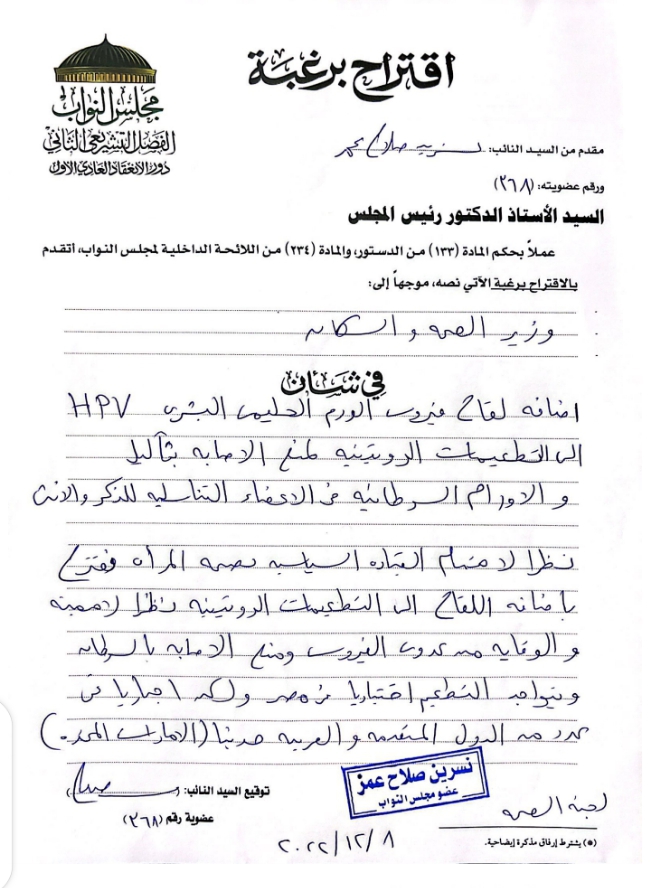 اقتراح برغبة
مجلس النواب
الفصل التشريعى الثانى
دور الانعقاد العادى الأول
مقدم من السيد النائب: نسرين صلاح عمر
ورقم عضويته: (٢٦٨)
السيد الأستاذ الدكتور رئيس المجلس
عملاً بحكم المادة (١٣٣) من الدستور، والمادة (٢٣٤) من اللائحة الداخلية لمجلس النواب، أتقدم
بالاقتراح برغبة الآتي نصه، موجهاً إلى:
وزير الصحه و السكان
في شأن
اضافه لقاح فيروس الورم الحليمى البشرى HPV
الى التطعيمات الروتينيه لمنع الاصابه بثآليل
و الاورام السرطانيه فى الاعضاء التناسليه للذكر والانثى
نظرا لاهتمام القياده السياسيه بصحه المرأه نقترح
باضافه اللقاح الى التطعيمات الروتينيه نظرا لاهميته
و الوقايه من عدوى الفيروس ومنع الاصابه بالسرطان
ويتواجد التطعيم اختياريا فى مصر ولكن اجباريا فى
عدد من الدول المتقدمه و العربيه حديثا (الامارات المتحده)
توقيع السيد النائب:
نسرين صلاح عمر
عضو مجلس النواب
لجنه الصحه
عضوية رقم (٢٦٨)
(*) يشترط إرفاق مذكرة إيضاحية.
٢٠٢٢/١٢/٨